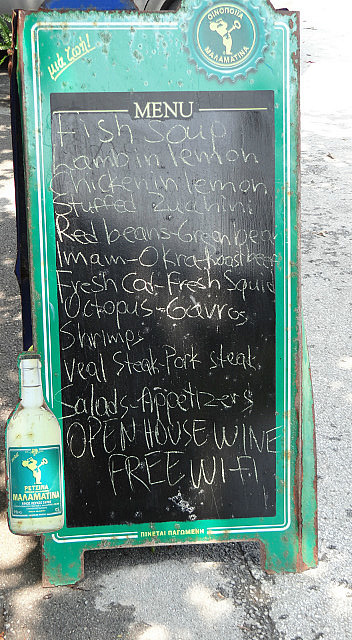 ΟΙΝΟΠΟΙΪΑ
ΜΑΛΑΜΑΤΙΝΑ
μια ζωή!
MENU
Fish Soup
Lamb in lemon
Chicken in lemon
Stuffed Zucchini
Red beans-Green bean
Imam-Okra-Roast beef
Fresh Cod-Fresh Squid
Octopus-Gavros
Shrimps
Veal Steak-Pork steak
Salads-Appetizers
OPEN HOUSE WINE
FREE WI-FI
ΡΕΤΣΙΝΑ
ΜΑΛΑΜΑΤΙΝΑ
ΠΙΝΕΤΑΙ ΠΑΓΩΜΕΝΗ